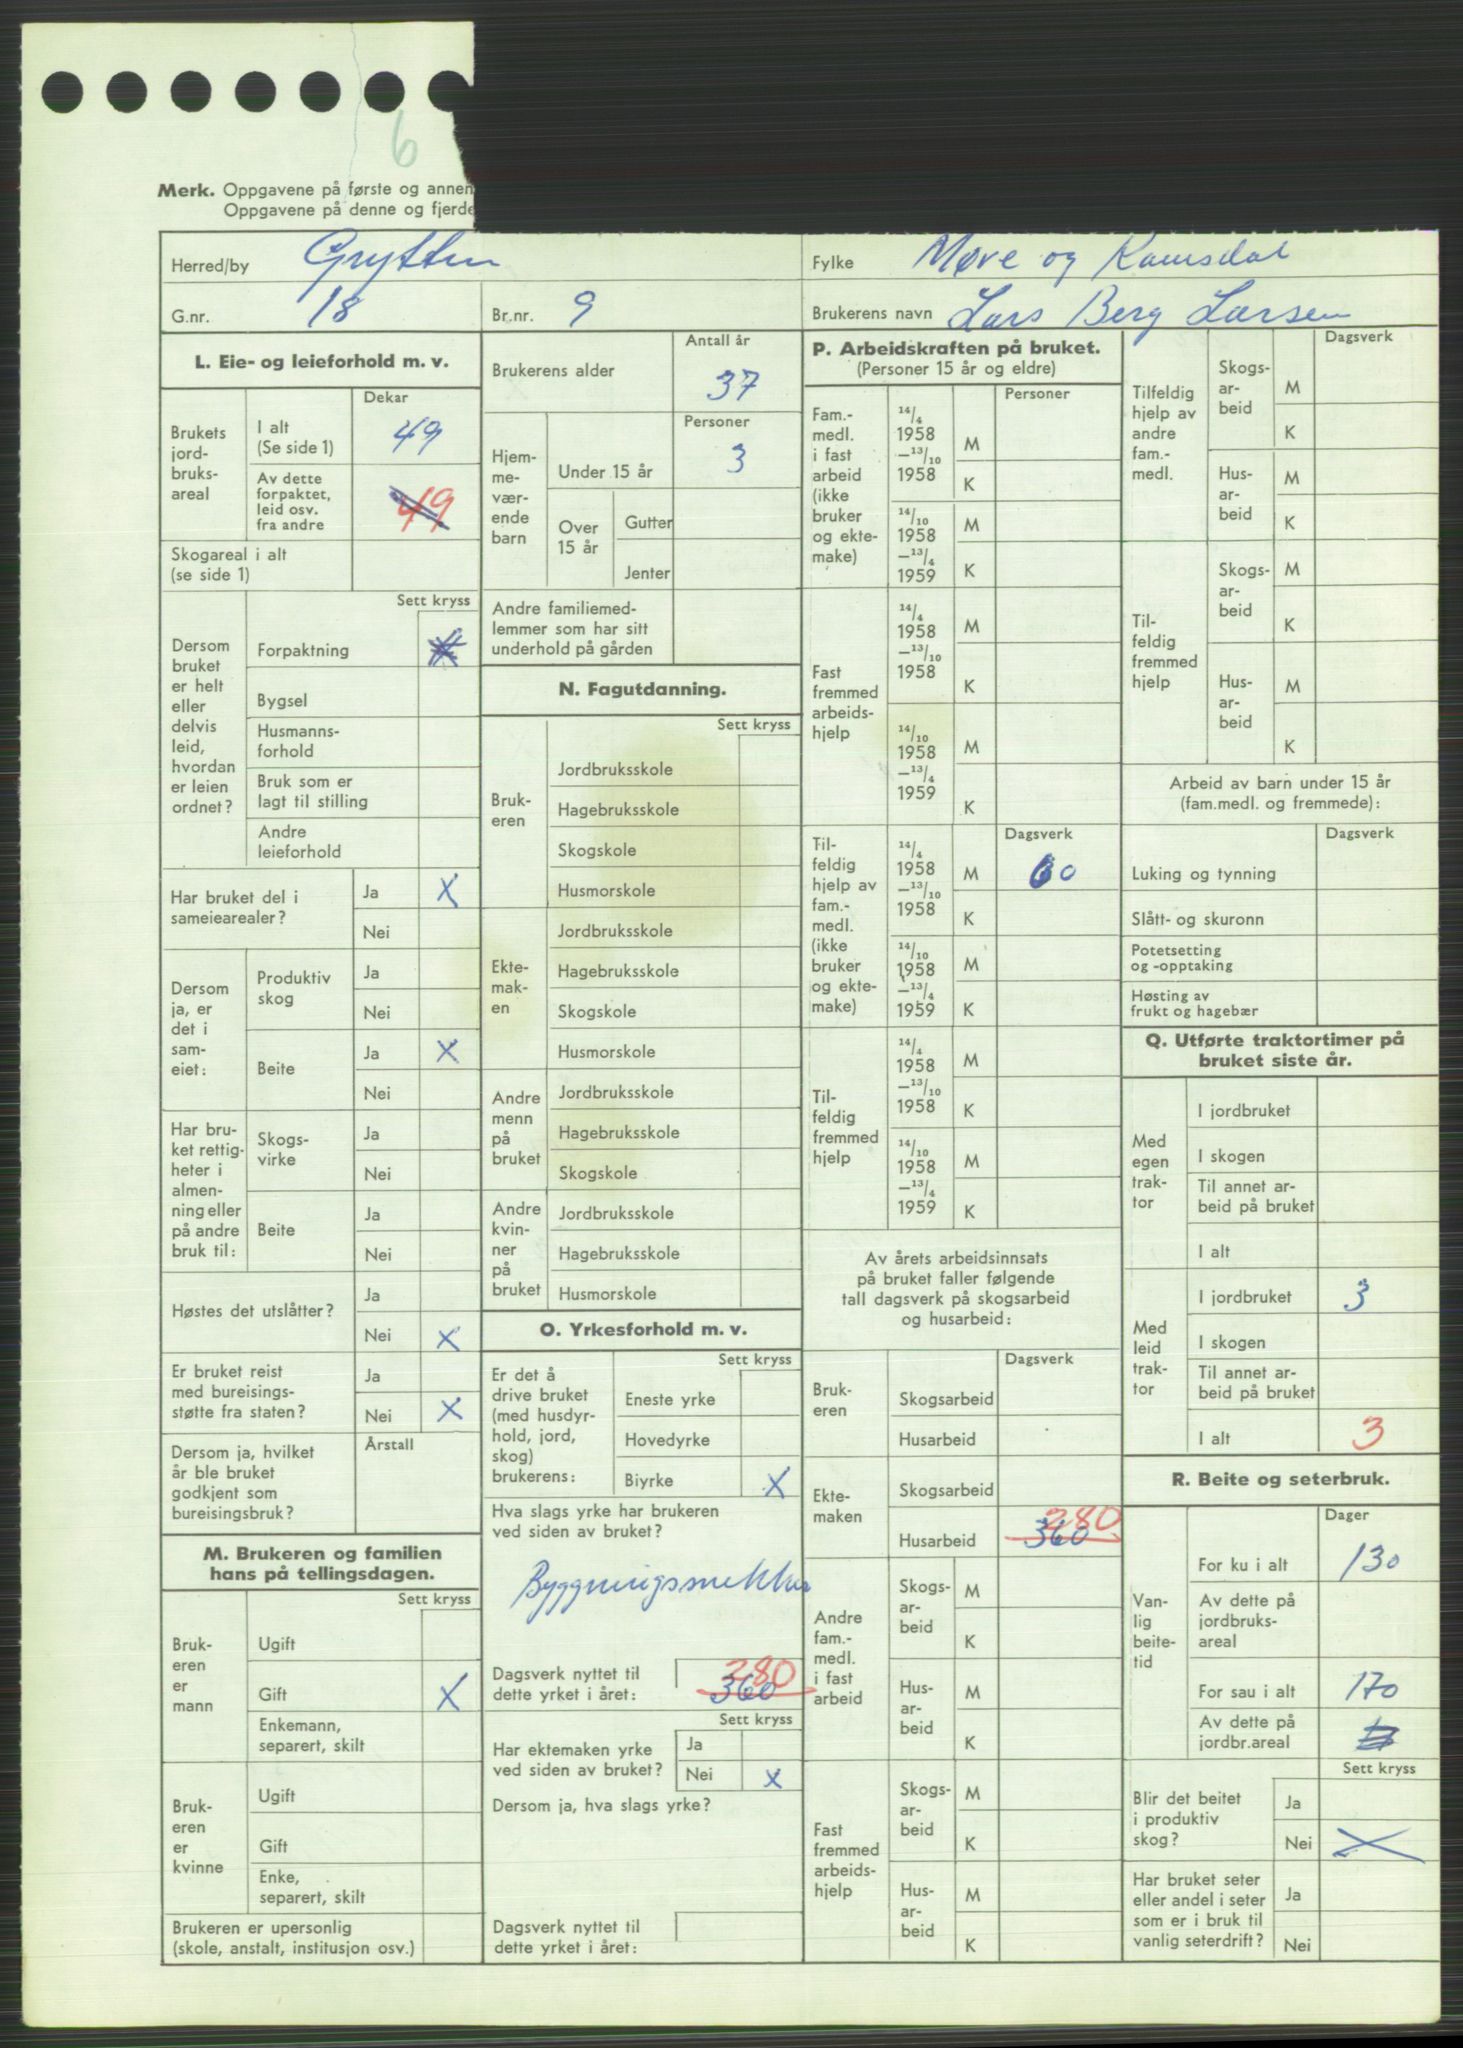 6
Merk. Oppgavene på første og annen
Oppgavene på denne og fjerde
Herred/by Grytten
Fylke Møre og Romsdal
G.nr. 18
Br.nr. 9
Brukerens navn Lars Berg Larsen
L. Eie- og leieforhold m. v.
Dekar
Brukets
jord-
bruks-
areal
I alt
(Se side 1)
49
Av dette
forpaktet,
leid osv.
fra andre
49
Skogareal i alt
(se side 1)
Sett kryss
Dersom
bruket
er helt
eller
delvis
leid,
hvordan
er leien
ordnet?
Forpaktning
Bygsel
Husmanns-
forhold
Bruk som er
lagt til stilling
Andre
leieforhold
Har bruket del i
sameiearealer?
Ja X
Nei
Dersom
ja, er
det i
sam-
eiet:
Produktiv
skog
Ja
Nei
Beite
Ja X
Nei
Har bru-
ket rettig-
heter i
almen-
ning eller
på andre
bruk til:
Skogs-
virke
Ja
Nei
Beite
Ja
Nei
Høstes det utslåtter?
Ja
Nei X
Er bruket reist
med bureisings-
støtte fra staten?
Ja
Nei X
Dersom ja, hvilket
år ble bruket
godkjent som
bureisingsbruk?
Årstall
M. Brukeren og familien
hans på tellingsdagen.
Sett kryss
Bruk-
eren
er
mann
Ugift
Gift X
Enkemann,
separert, skilt
Bruk-
eren
er
kvinne
Ugift
Gift
Enke,
separert, skilt
Brukeren er upersonlig
(skole, anstalt, institusjon osv.)
Antall år
Brukerens alder 37
Personer
Hjem-
me-
vær-
ende
barn
Under 15 år 3
Over
15 år
Gutter
Jenter
Andre familiemed-
lemmer som har sitt
underhold på gården
N. Fagutdanning.
Sett kryss
Bruk-
eren
Jordbruksskole
Hagebruksskole
Skogskole
Husmorskole
Ekte-
mak-
en
Jordbruksskole
Hagebruksskole
Skogskole
Husmorskole
Andre
menn
på
bruket
Jordbruksskole
Hagebruksskole
Skogskole
Andre
kvin-
ner
på
bruket
Jordbruksskole
Hagebruksskole
Husmorskole
O. Yrkesforhold m. v.
Sett kryss
Er det å
drive bruket
(med husdyr-
hold, jord,
skog)
brukerens:
Eneste yrke
Hovedyrke
Biyrke X
Hva slags yrke har brukeren
ved siden av bruket?
Byggningssnekker
Dagsverk nyttet til
dette yrket i året:
280
360
Sett kryss
Har ektemaken yrke
ved siden av bruket?
Ja
Nei X
Dersom ja, hva slags yrke?
Dagsverk nyttet til
dette yrket i året:
P. Arbeidskraften på bruket.
(Personer 15 år og eldre)
Personer
Fam.-
medl.
i fast
arbeid
(ikke
bruker
og ekte-
make)
14/4
1958
—13/10
1958
M
K
14/10
1958
—13/4
1959
M
K
Fast
fremmed
arbeids-
hjelp
14/4
1958
—13/10
1958
M
K
14/10
1958
—13/4
1959
M
K
Dagsverk
Til-
feldig
hjelp av
fam.-
medl.
(ikke
bruker
og ekte-
make)
14/4
1958
—13/10
1958
M 60
K
14/10
1958
—13/4
1959
M
K
Til-
feldig
fremmed
hjelp
14/4
1958
—13/10
1958
M
K
14/10
1958
—13/4
1959
M
K
Av årets arbeidsinnsats
på bruket faller følgende
tall dagsverk på skogsarbeid
og husarbeid:
Dagsverk
Bruk-
eren
Skogsarbeid
Husarbeid
Ekte-
maken
Skogsarbeid
Husarbeid
280
360
Andre
fam.-
medl.
i fast
arbeid
Skogs-
ar-
beid
M
K
Hus-
ar-
beid
M
K
Fast
fremmed
arbeids-
hjelp
Skogs-
ar-
beid
M
K
Hus-
ar-
beid
M
K
Dagsverk
Tilfeldig
hjelp av
andre
fam.-
medl.
Skogs-
ar-
beid
M
K
Hus-
ar-
beid
M
K
Til-
feldig
fremmed
hjelp
Skogs-
ar-
beid
M
K
Hus-
ar-
beid
M
K
Arbeid av barn under 15 år
(fam.medl. og fremmede):
Dagsverk
Luking og tynning
Slått- og skuronn
Potetsetting
og -opptaking
Høsting av
frukt og hagebær
Q. Utførte traktortimer på
bruket siste år.
Med
egen
trak-
tor
I jordbruket
I skogen
Til annet ar-
beid på bruket
I alt
Med
leid
trak-
tor
I jordbruket 3
I skogen
Til annet ar-
beid på bruket
I alt 3
R. Beite og seterbruk.
Dager
Van-
lig
beite-
tid
For ku i alt 130
Av dette på
jordbruks-
areal
For sau i alt 170
Av dette på
jordbr.areal
Sett kryss
Blir det beitet
i produktiv
skog?
Ja
Nei X
Har bruket seter
eller andel i seter
som er i bruk til
vanlig seterdrift?
Ja
Nei